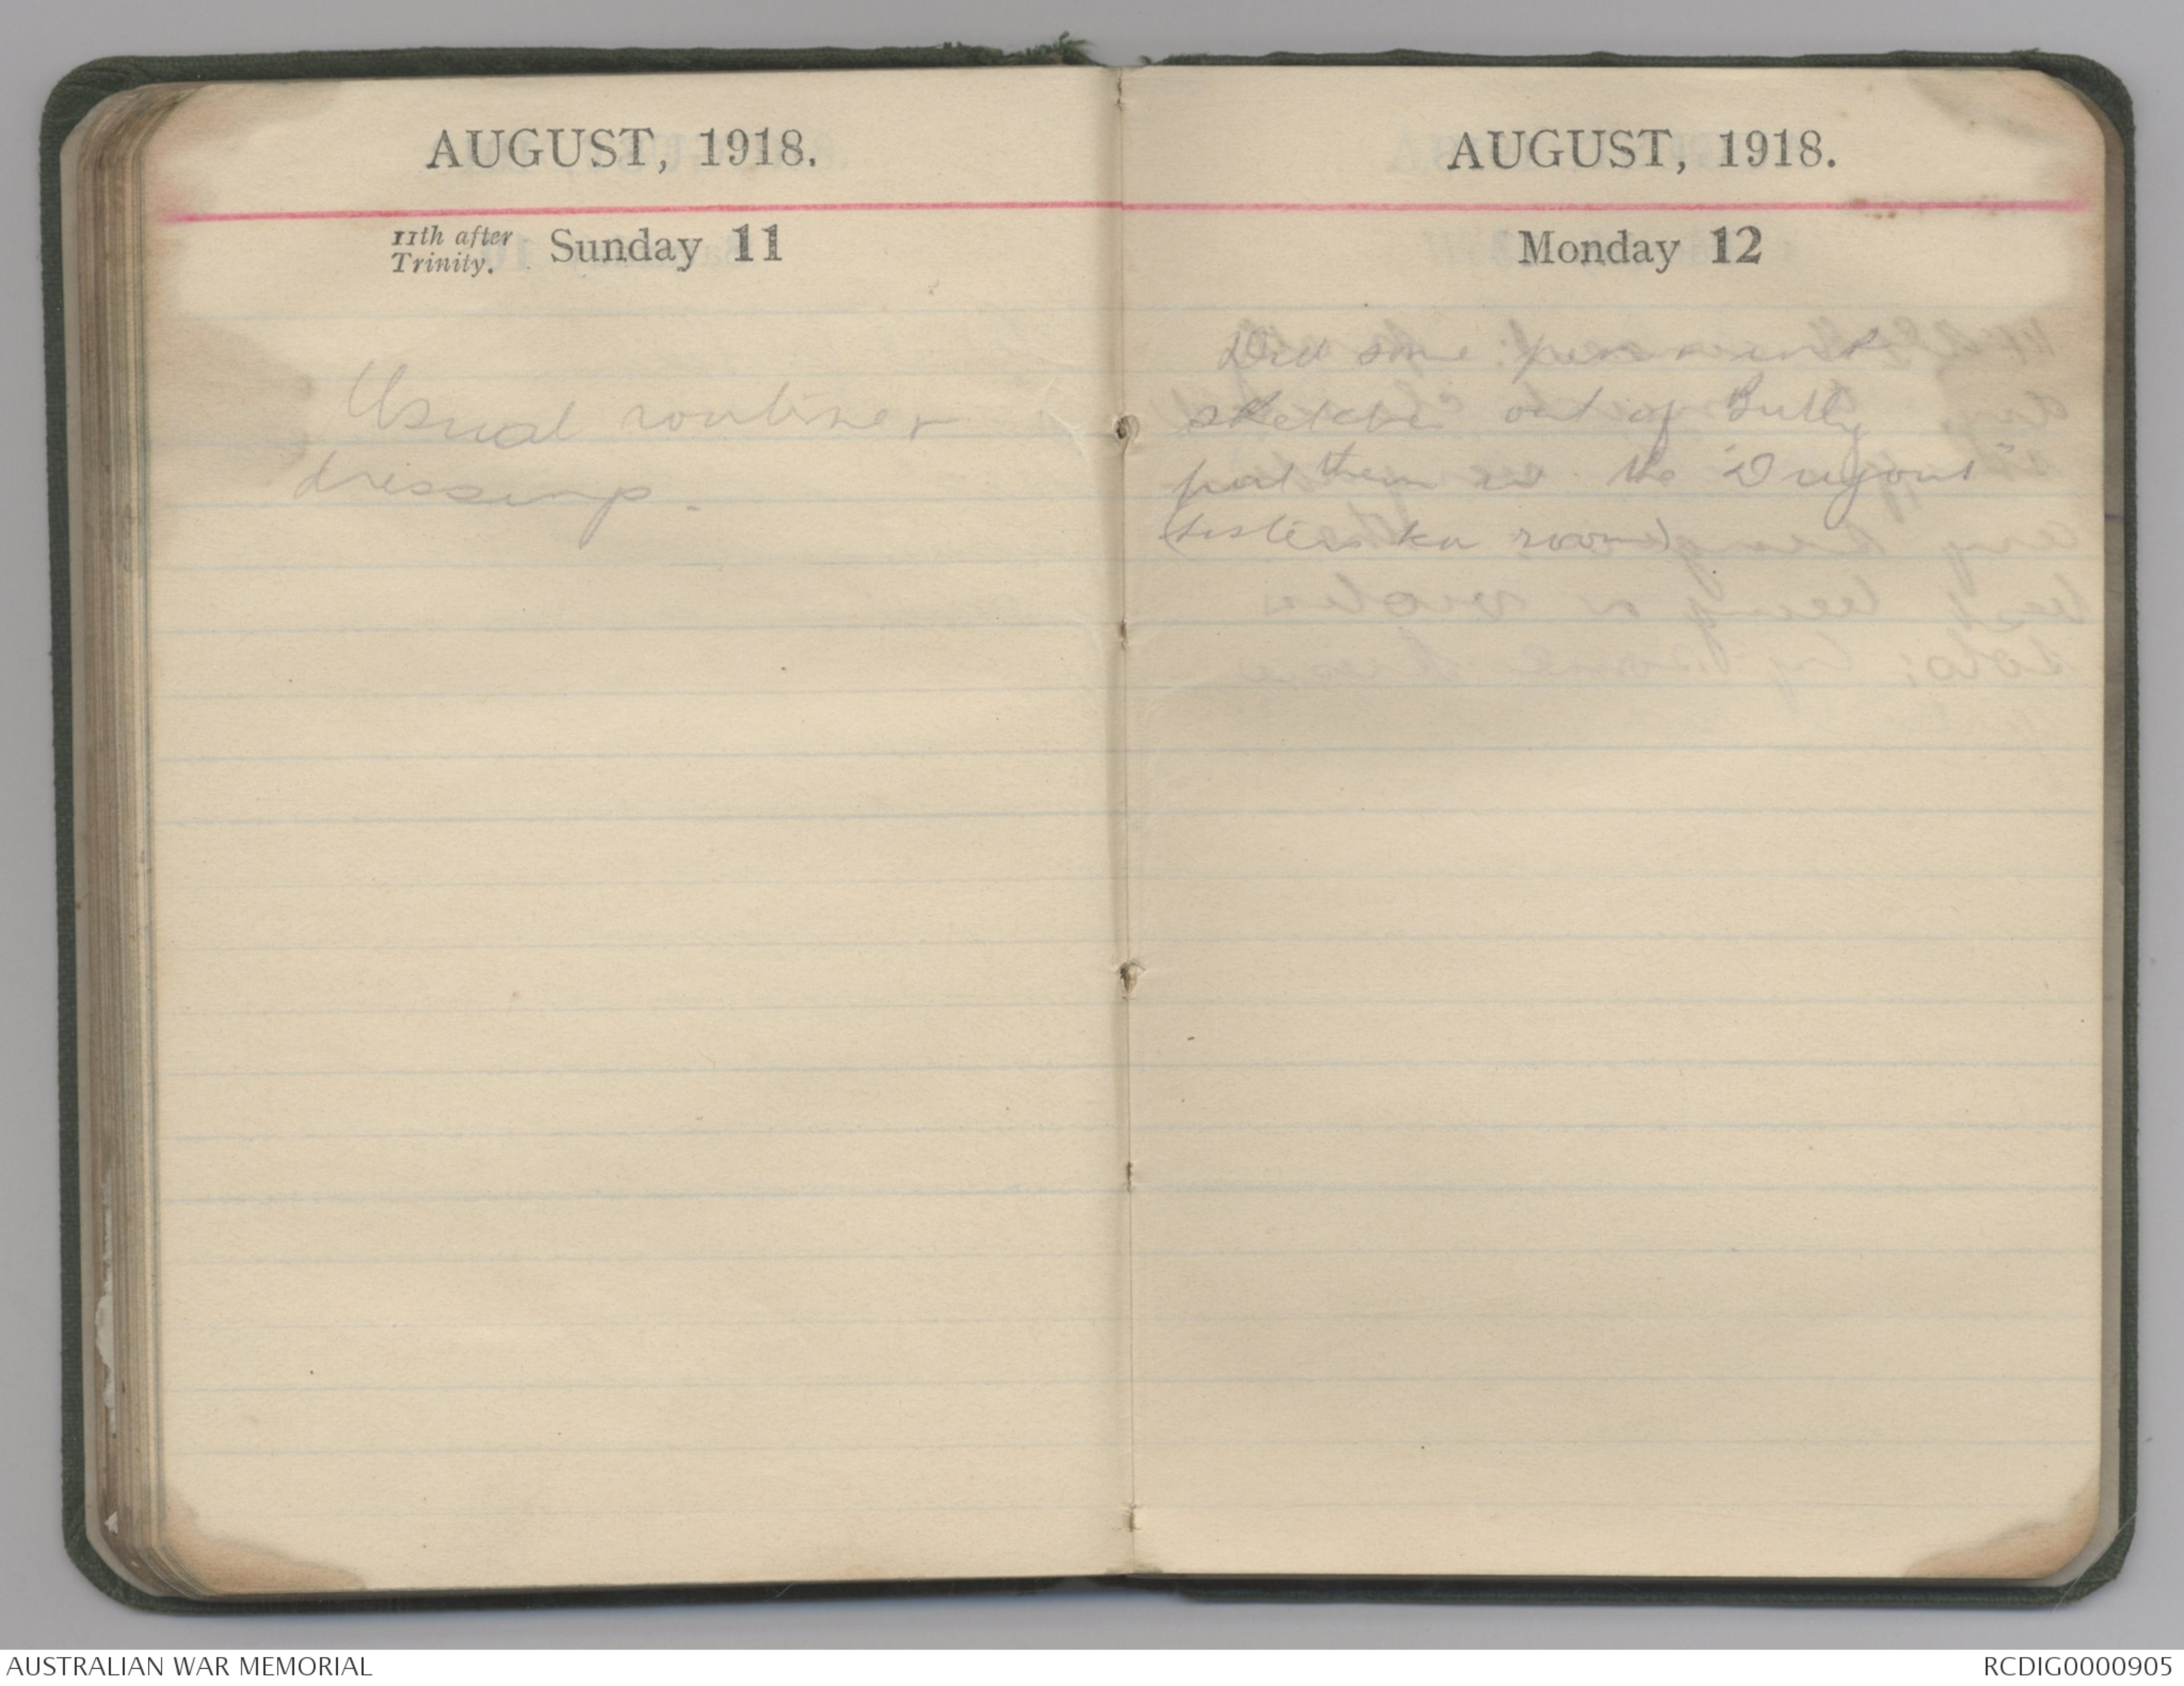 AUGUST, 1918.
11th after
Trinity.
Sunday 11
Usual routine +
dressings.
AUGUST, 1918.
Monday 12
Did some pen & ink
sketches out of Bully
put them in the "Dugout"
(sisters tea room)
AUSTRALIAN WAR MEMORIAL
RCDIG0000905